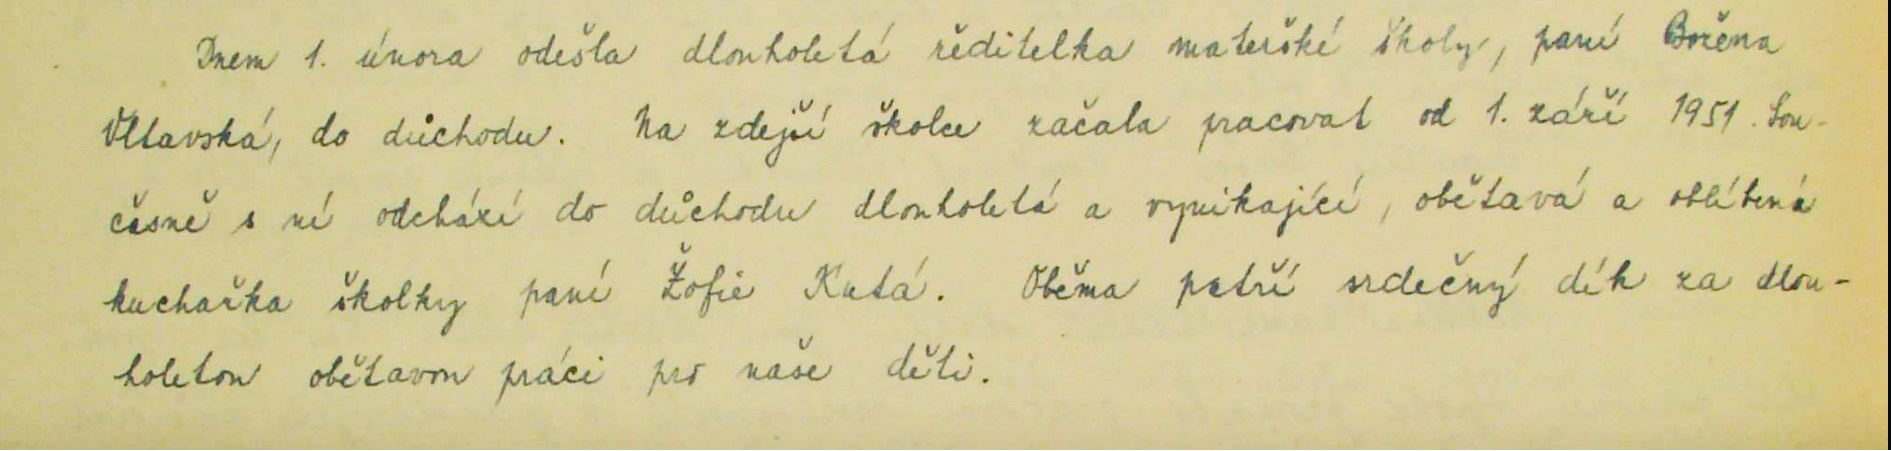 Dnem 1. února odešla dlouholetá ředitelka mateřské školy, paní Božena
Vltavská, do důchodu. Na zdejší školce začala pracovat od 1. září 1951. Sou-
časně s ní odchází do důchodu dlouholetá a vynikající, obětavá a oblíbená
kuchařka školky paní Žofie Kutá. Oběma patří srdečný dík za dlou-
holetou obětavou práci pro naše děti.